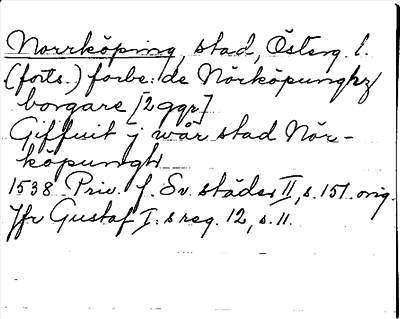 Norrköping, stad, Österg. l.
(forts.) förbe:de Nörköpungxz
borgare [2 ggr]
Giffuit j wår stad Nör-
köpungh
1538 Priv. f. Sv. städer II, s. 151 orig.
Jfr Gustaf I:s reg. 12, s. 11.